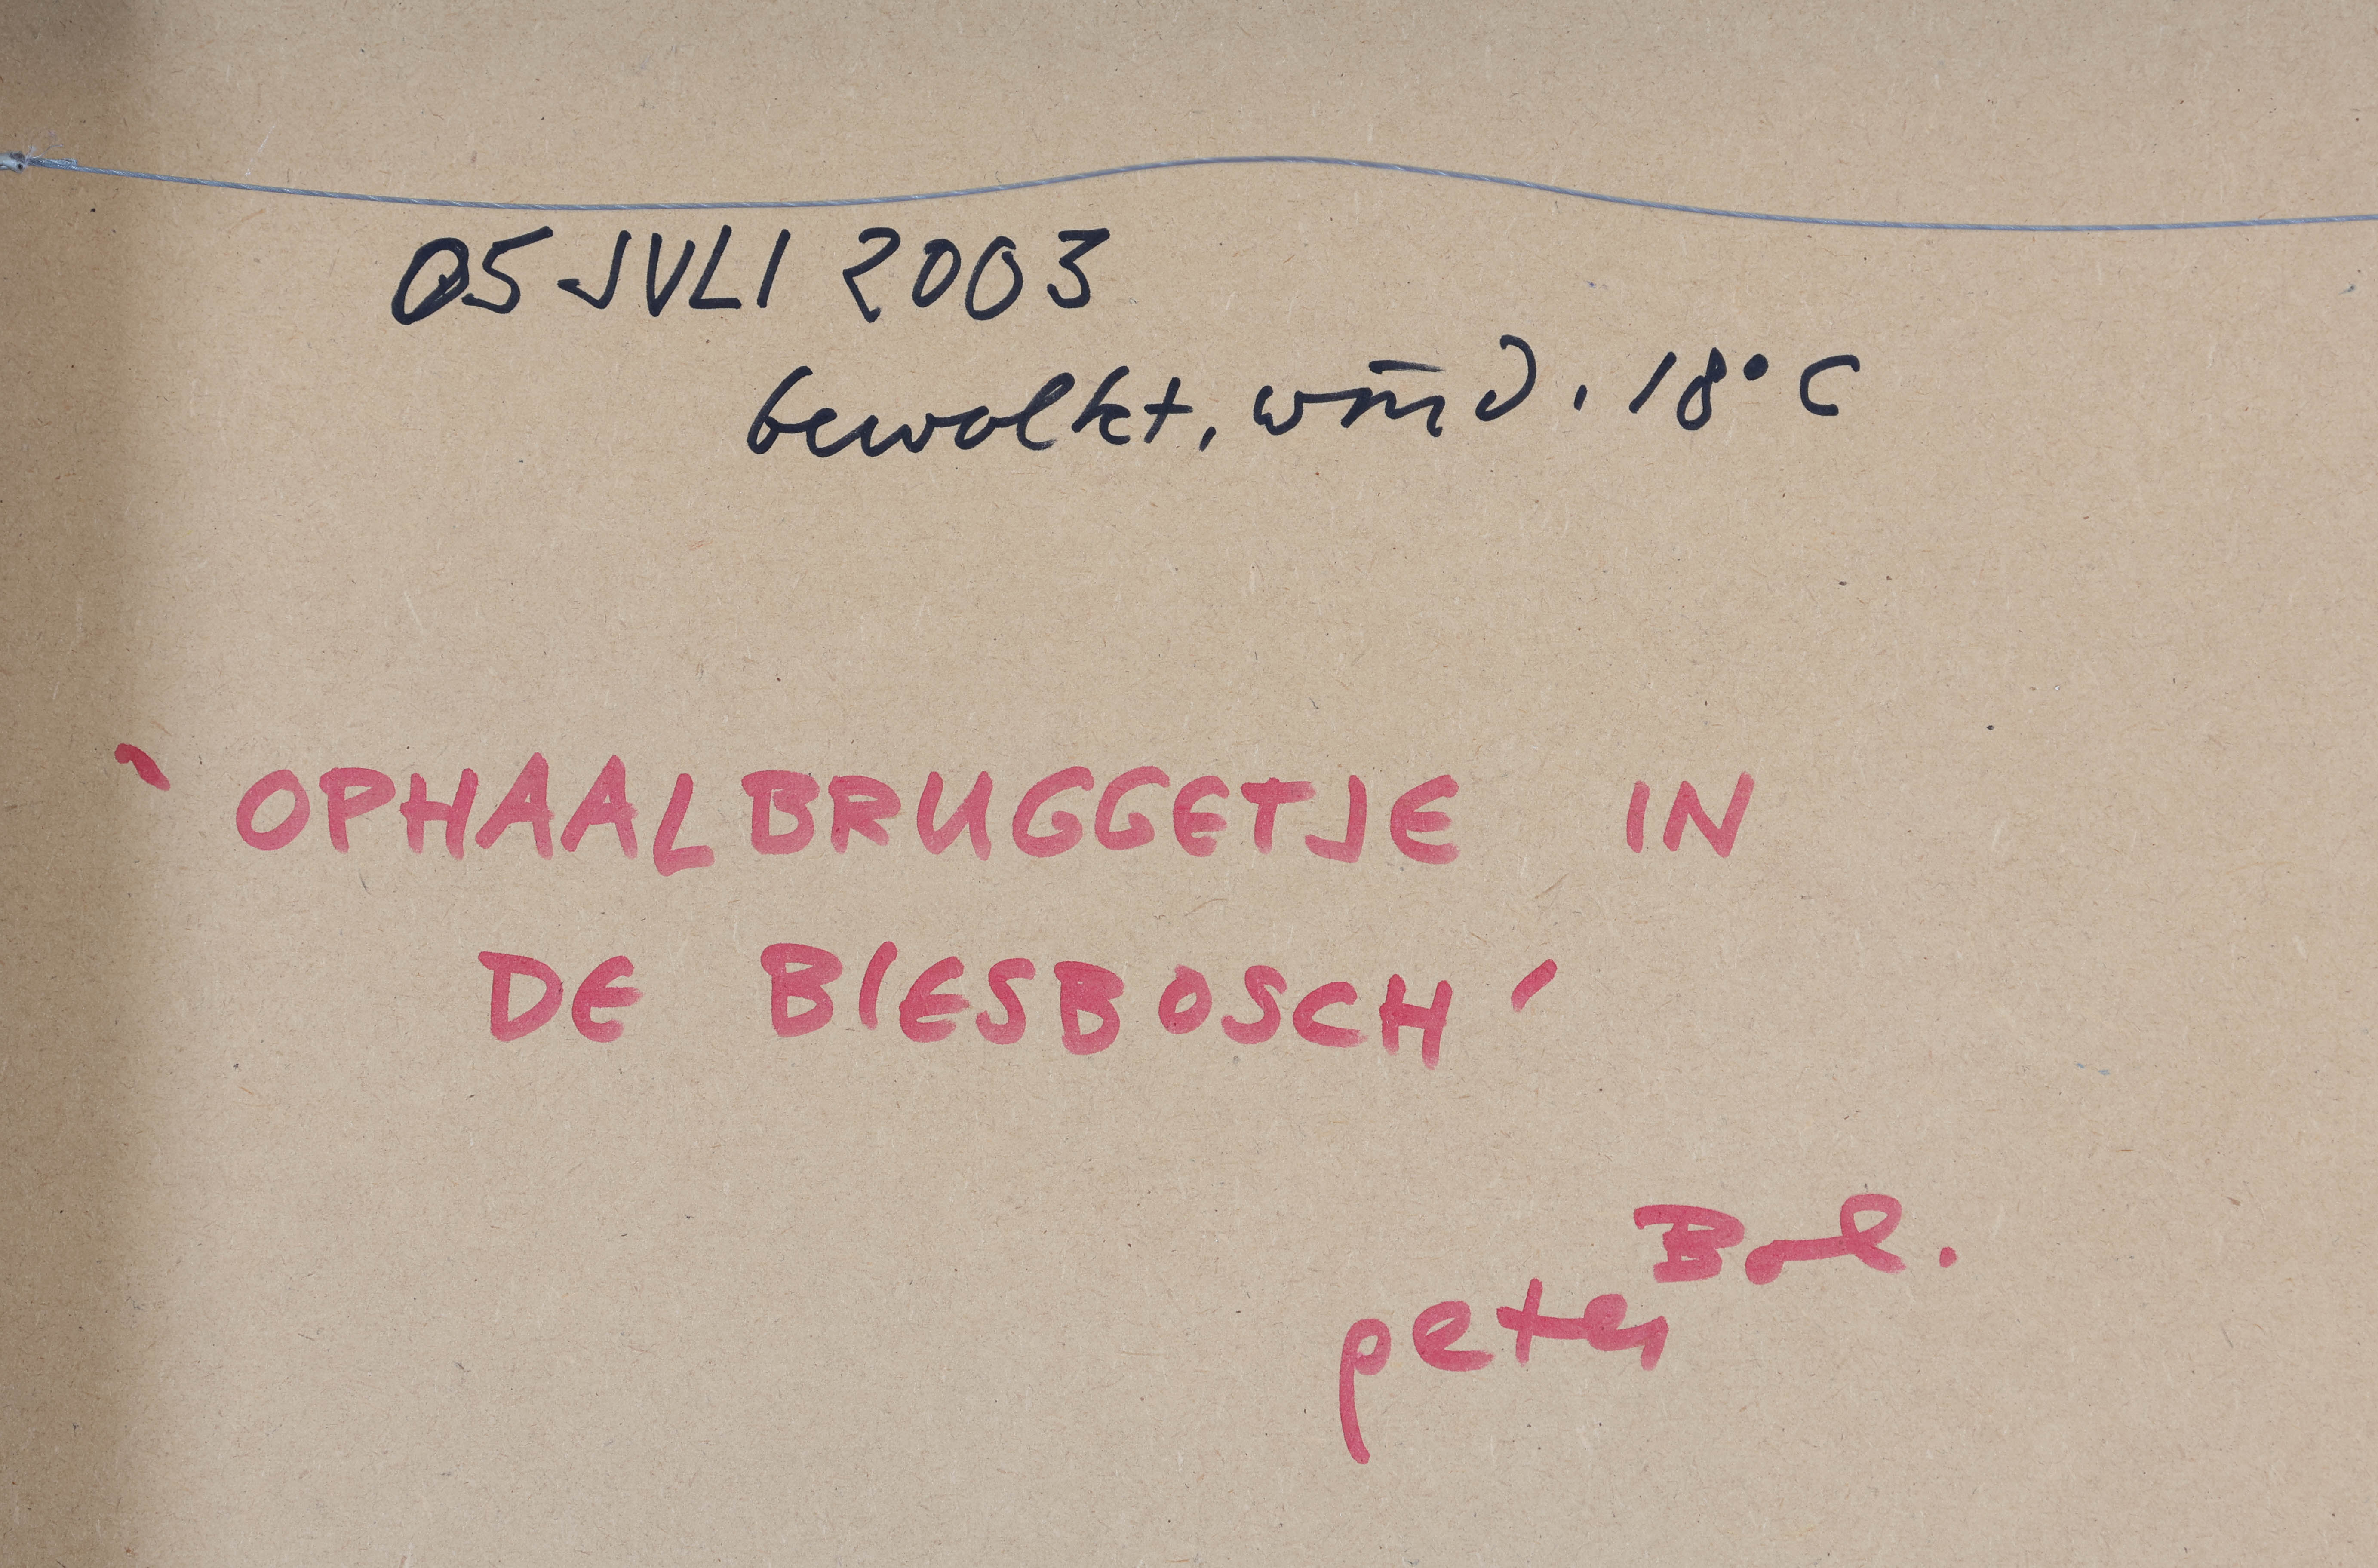 05 JULI 2003
bewolkt, wind, 18° C
‵OPHAALBRUGGETJE IN
DE BIESBOSCH′
peter Bol.